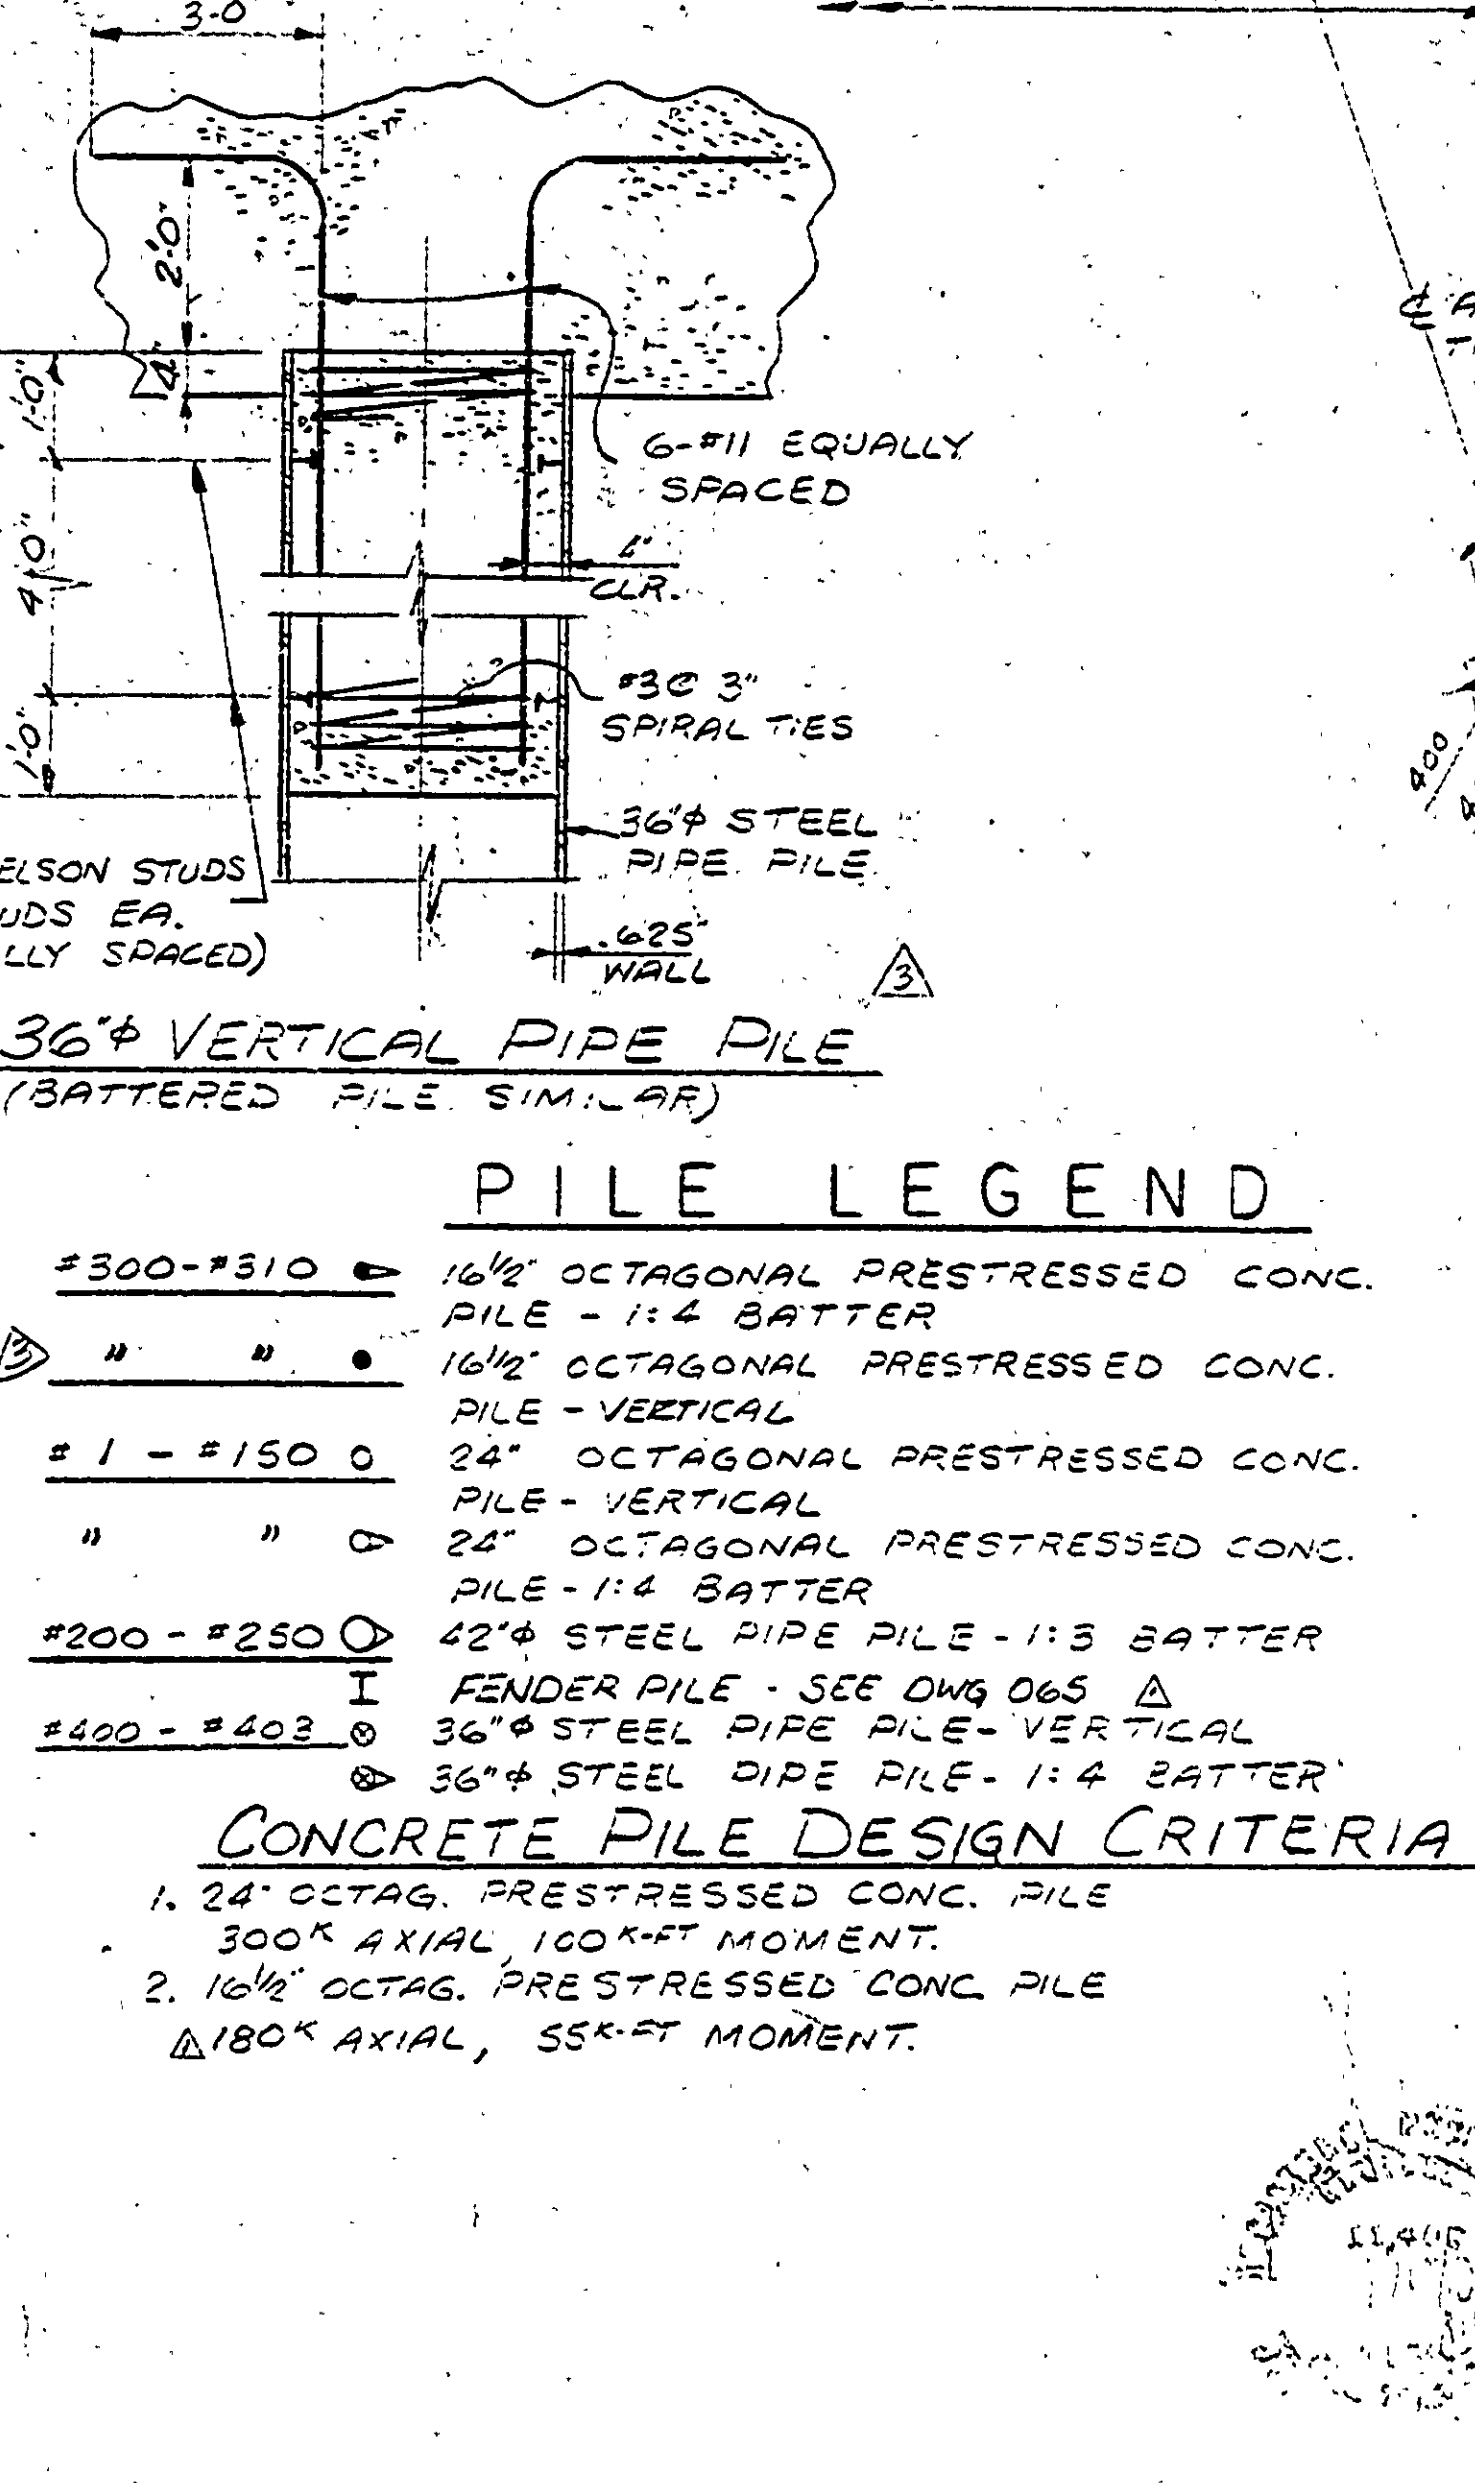 3-0
2'0"
4"
1'-0"
6-#11 EQUALLY
SPACED
4'0"
4"
CLR.
#3@ 3"
SPIRAL TIES
1'-0"
36"φ STEEL
PIPE PILE
400
ELSON STUDS
UDS EA.
LLY SPACED)
.625"
WALL
3
36"φ VERTICAL PIPE PILE
(BATTERED PILE SIMILAR)
PILE LEGEND
#300-#310 16½" OCTAGONAL PRESTRESSED CONC.
PILE - 1:4 BATTER
3 " " 16½" OCTAGONAL PRESTRESSED CONC.
PILE - VERTICAL
# 1 - #150 24" OCTAGONAL PRESTRESSED CONC.
PILE - VERTICAL
" " 24" OCTAGONAL PRESTRESSED CONC.
PILE - 1:4 BATTER
#200 - #250 42"φ STEEL PIPE PILE - 1:3 BATTER
FENDER PILE - SEE DWG 065
#400 - #403 36"φ STEEL PIPE PILE - VERTICAL
36"φ STEEL PIPE PILE - 1:4 BATTER
CONCRETE PILE DESIGN CRITERIA
1. 24" OCTAG. PRESTRESSED CONC. PILE
300K AXIAL, 100K-FT MOMENT.
2. 16½" OCTAG. PRESTRESSED CONC. PILE
180K AXIAL, 55K-FT MOMENT.